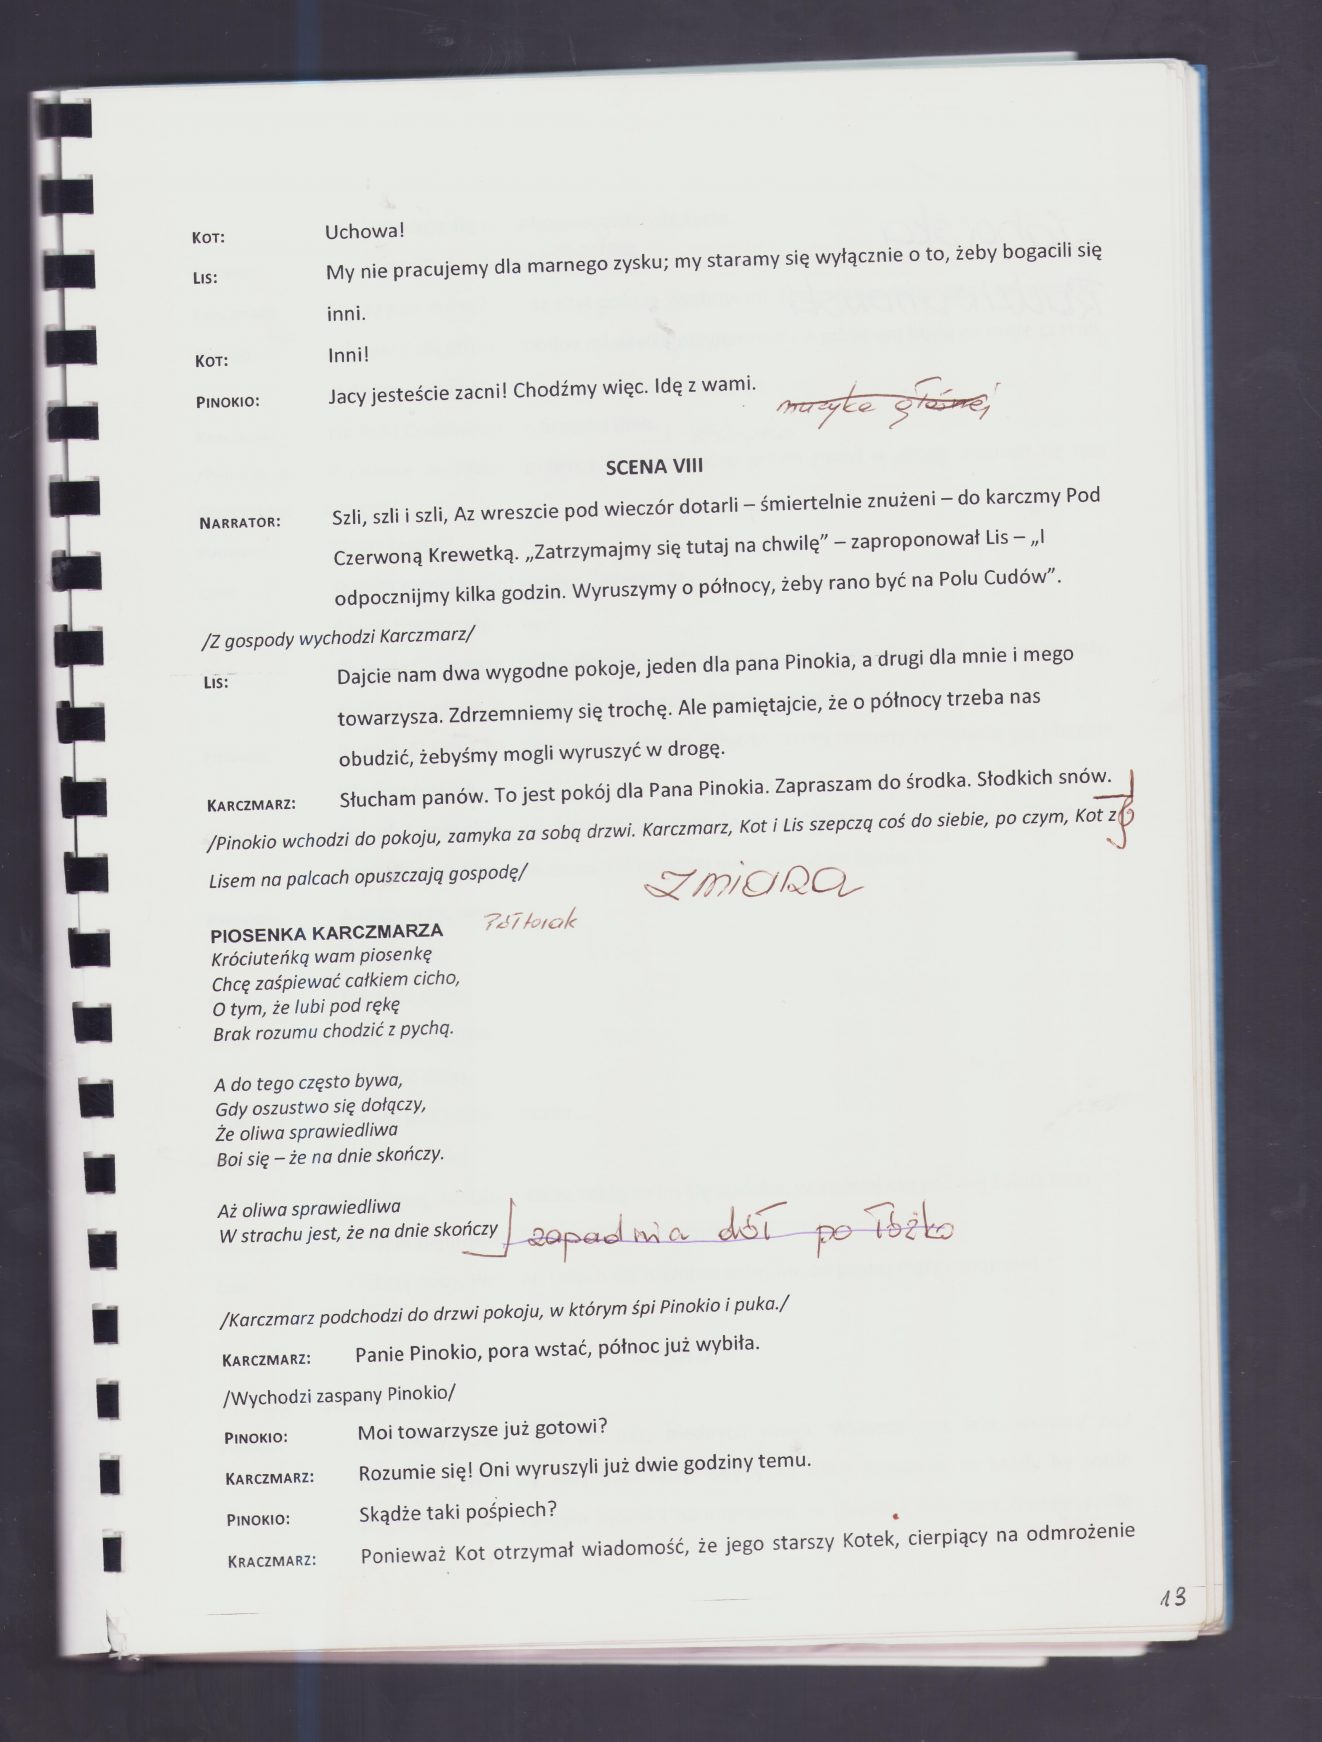 KOT: Uchowa!
LIS: My nie pracujemy dla marnego zysku; my staramy się wyłącznie o to, żeby bogacili się
inni.
KOT: Inni!
PINOKIO: Jacy jesteście zacni! Chodźmy więc. Idę z wami.
muzyka głośniej
SCENA VIII
NARRATOR: Szli, szli i szli, Az wreszcie pod wieczór dotarli – śmiertelnie znużeni – do karczmy Pod
Czerwoną Krewetką. „Zatrzymajmy się tutaj na chwilę” – zaproponował Lis – „I
odpocznijmy kilka godzin. Wyruszymy o północy, żeby rano być na Polu Cudów”.
/Z gospody wychodzi Karczmarz/
LIS: Dajcie nam dwa wygodne pokoje, jeden dla pana Pinokia, a drugi dla mnie i mego
towarzysza. Zdrzemniemy się trochę. Ale pamiętajcie, że o północy trzeba nas
obudzić, żebyśmy mogli wyruszyć w drogę.
KARCZMARZ: Słucham panów. To jest pokój dla Pana Pinokia. Zapraszam do środka. Słodkich snów.
/Pinokio wchodzi do pokoju, zamyka za sobą drzwi. Karczmarz, Kot i Lis szepczą coś do siebie, po czym, Kot z
Lisem na palcach opuszczają gospodę/
ZMIANA
PIOSENKA KARCZMARZA Półtorak
Króciuteńką wam piosenkę
Chcę zaśpiewać całkiem cicho,
O tym, że lubi pod rękę
Brak rozumu chodzić z pychą.
A do tego często bywa,
Gdy oszustwo się dołączy,
Że oliwa sprawiedliwa
Boi się – że na dnie skończy.
Aż oliwa sprawiedliwa
W strachu jest, że na dnie skończy zapadnia dół po łóżko
/Karczmarz podchodzi do drzwi pokoju, w którym śpi Pinokio i puka./
KARCZMARZ: Panie Pinokio, pora wstać, północ już wybiła.
/Wychodzi zaspany Pinokio/
PINOKIO: Moi towarzysze już gotowi?
KARCZMARZ: Rozumie się! Oni wyruszyli już dwie godziny temu.
PINOKIO: Skądże taki pośpiech?
KRACZMARZ: Ponieważ Kot otrzymał wiadomość, że jego starszy Kotek, cierpiący na odmrożenie
13